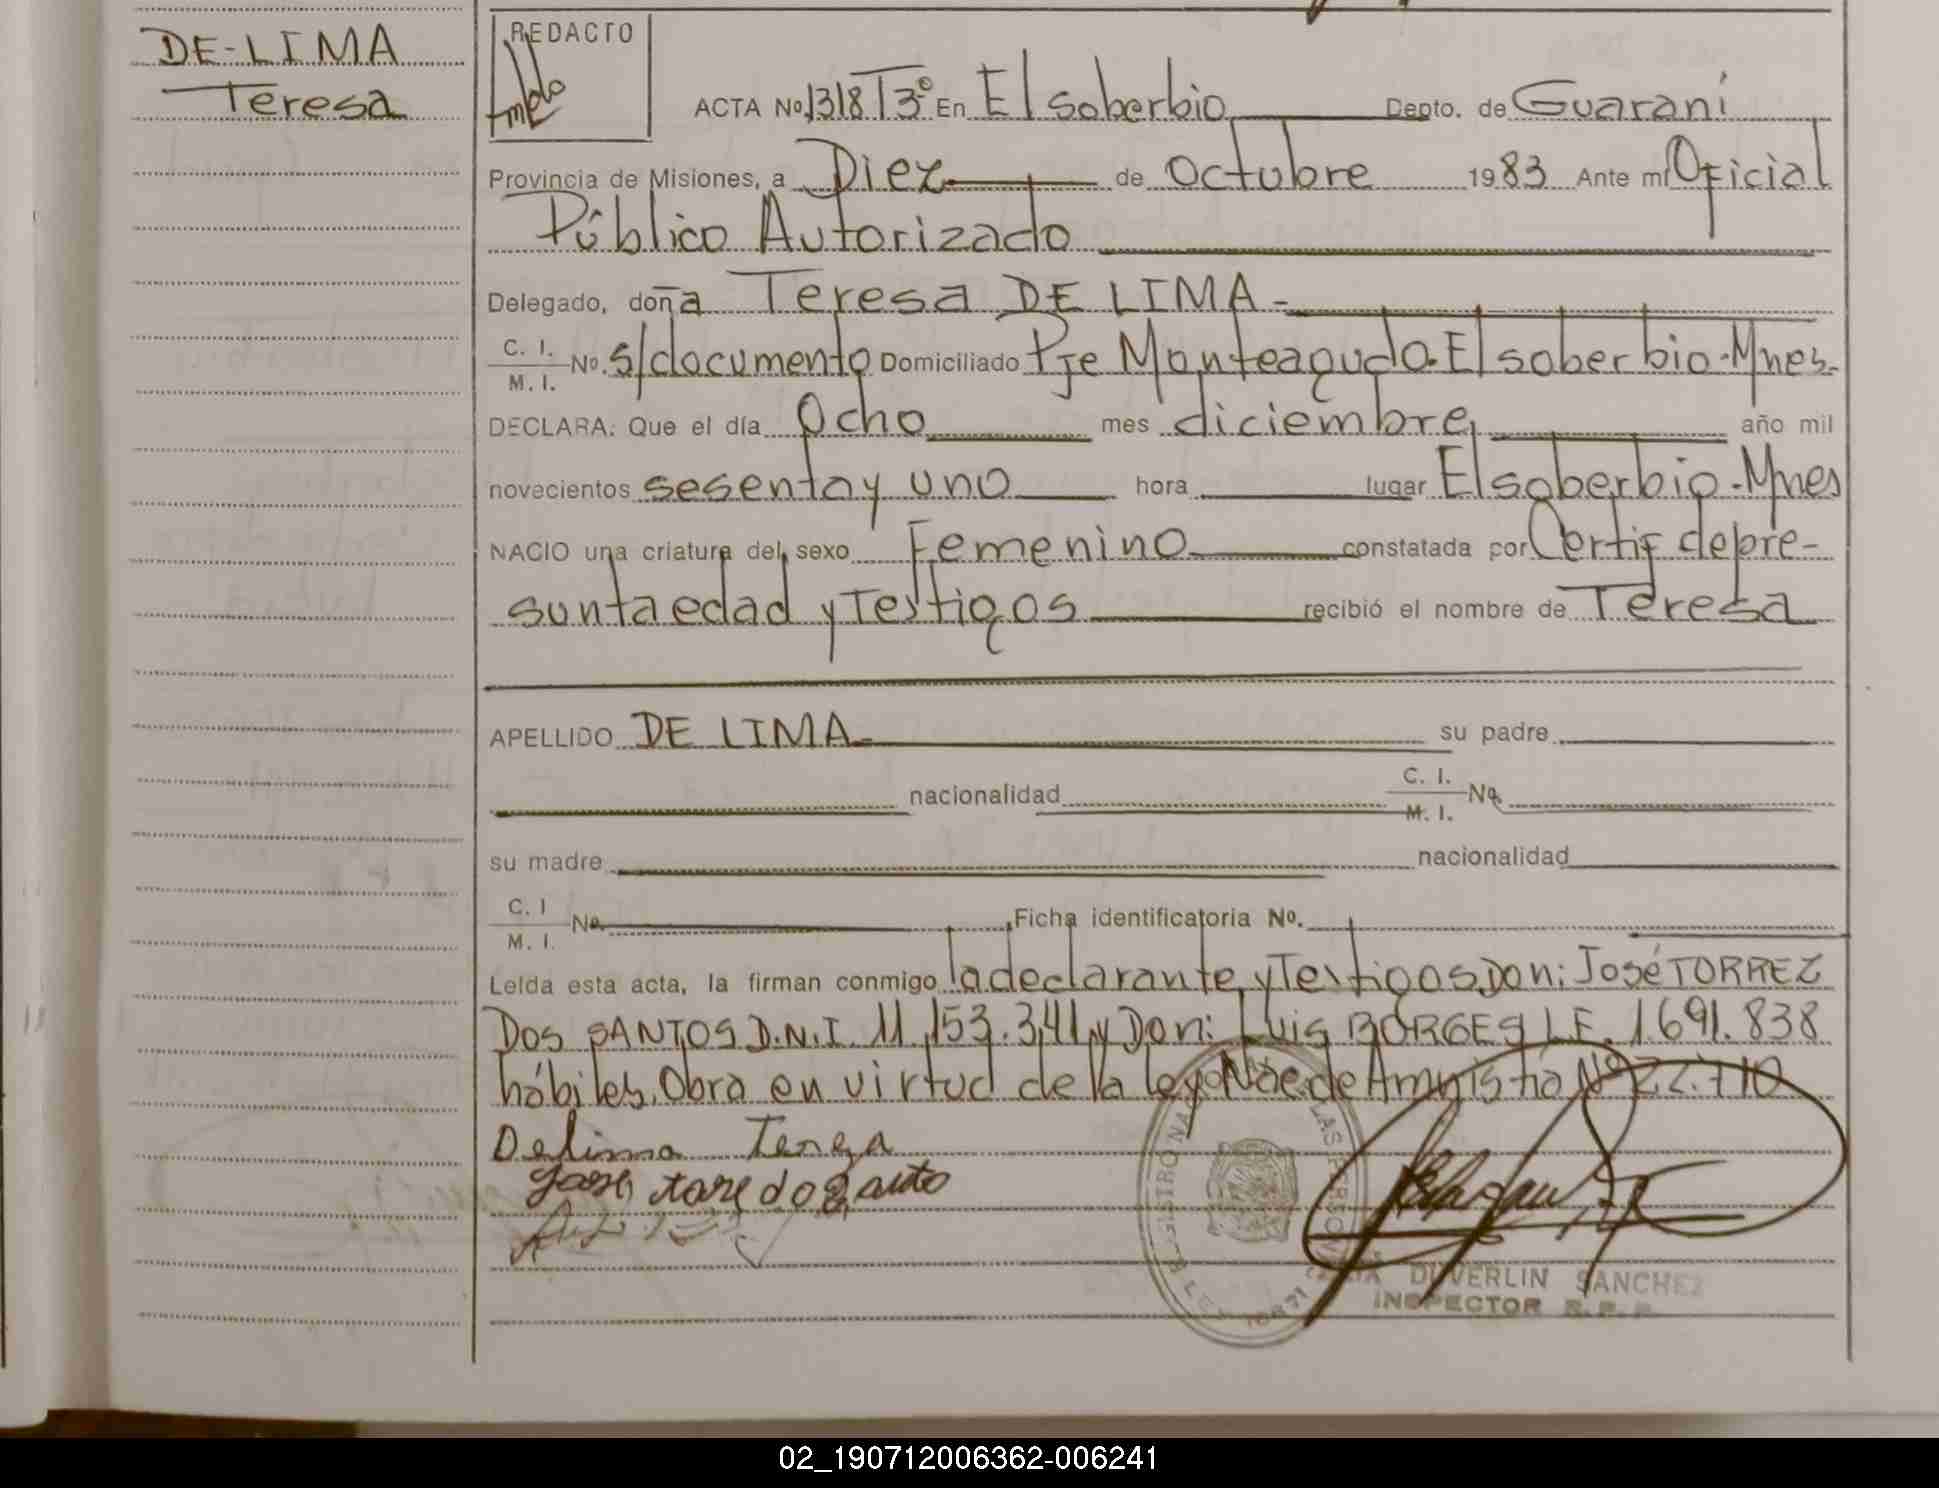 DE-LIMA
Teresa
REDACTO
ACTA Nº 1318 T3º En El soberbio Depto. de Guaraní
Provincia de Misiones, a Diez de Octubre 1983 Ante mí Oficial
Público Autorizado
Delegado, doña Teresa DE LIMA-
C. I.
M. I. Nº. s/documento Domiciliado Pje Monteagudo. El soberbio-Mnes-
DECLARA: Que el día Ocho mes diciembre año mil
novecientos sesenta y uno hora lugar El soberbio-Mnes
NACIO una criatura del sexo Femenino constatada por Certif de pre-
sunta edad y Testigos recibió el nombre de Teresa
APELLIDO DE LIMA- su padre
nacionalidad C. I.
M. I. Nº
su madre nacionalidad
C. I
M. I. Nº Ficha identificatoria Nº.
Leída esta acta, la firman conmigo la declarante y Testigos Don: José TORREZ
DOS SANTOS D.N.I. 11.153.341 y Don: Luis BORGES L.E. 1.691.838
hábiles. Obra en virtud de la ley Nac de Amnistia Nº
Delima
DUVERLIN SANCHEZ
INSPECTOR R. P. P.
02_190712006362-006241